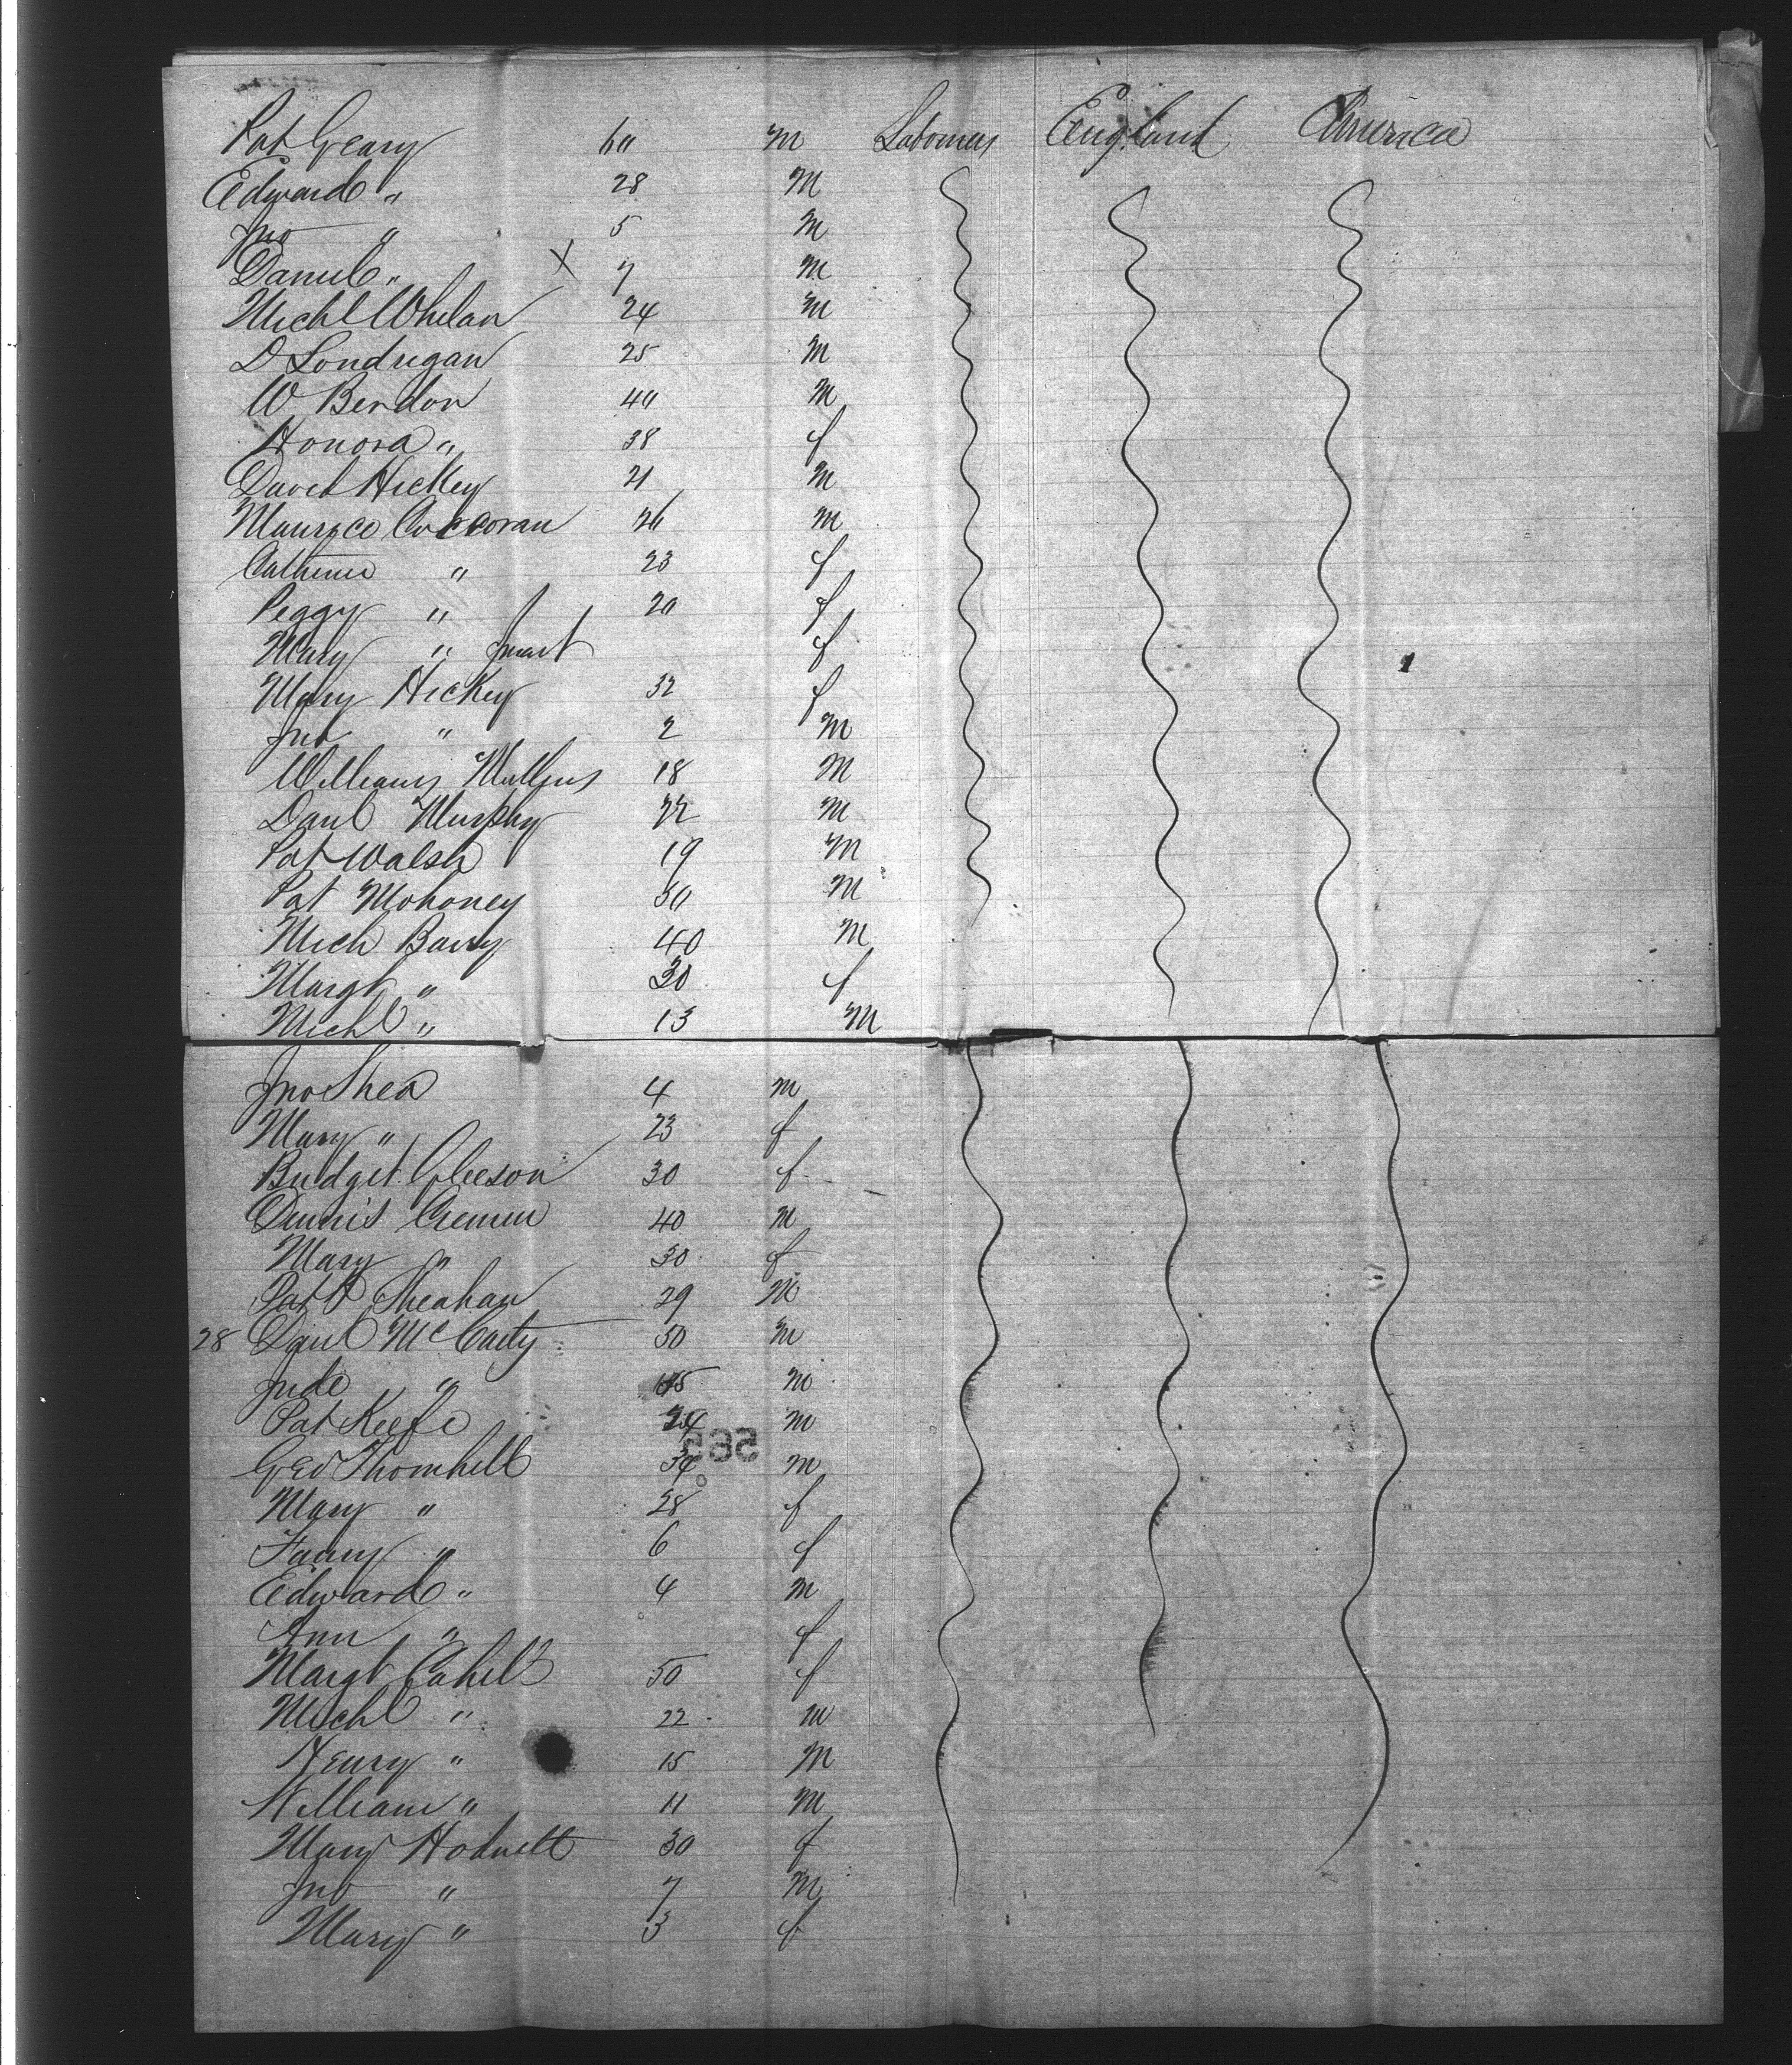 Pat Geary 60 M Labourers England America
Edward " 28 M
Jno " 5 M
Daniel " X 7 M
Michl Whelan 24 M
D Londrigan 25 M
W Berdon 40 M
Honora " 38 f
David Hickey 21 M
Maurice Corcoran 26 M
Catherine " 23 f
Peggy " 20 f
Mary " Infant f
Mary Hickey 32 f
Jno " 2 M
William Mullins 18 M
Danl Murphy 22 M
Pat Walsh 19 M
Pat Mohoney 50 M
Mich Barry 40 M
Margt " 30 f
Michl " 13 M
Jno Shea 4 m
Mary " 23 f
Bridget Gleeson 30 f
Dennis Cremin 40 m
Mary " 30 f
Patk Sheahan 29 M
28 Danl McCarty 50 m
Jude " 45 m
Pat Keefe 24 m
Geo Thornhill 34 m
Mary " 28 f
Fanny " 6 f
Edward " 4 m
Ann " f
Margt Cahill 50 f
Michl " 22 m
Henry " 15 M
William " 11 M
Mary Hodnett 30 f
Jno " 7 M
Mary " 3 f